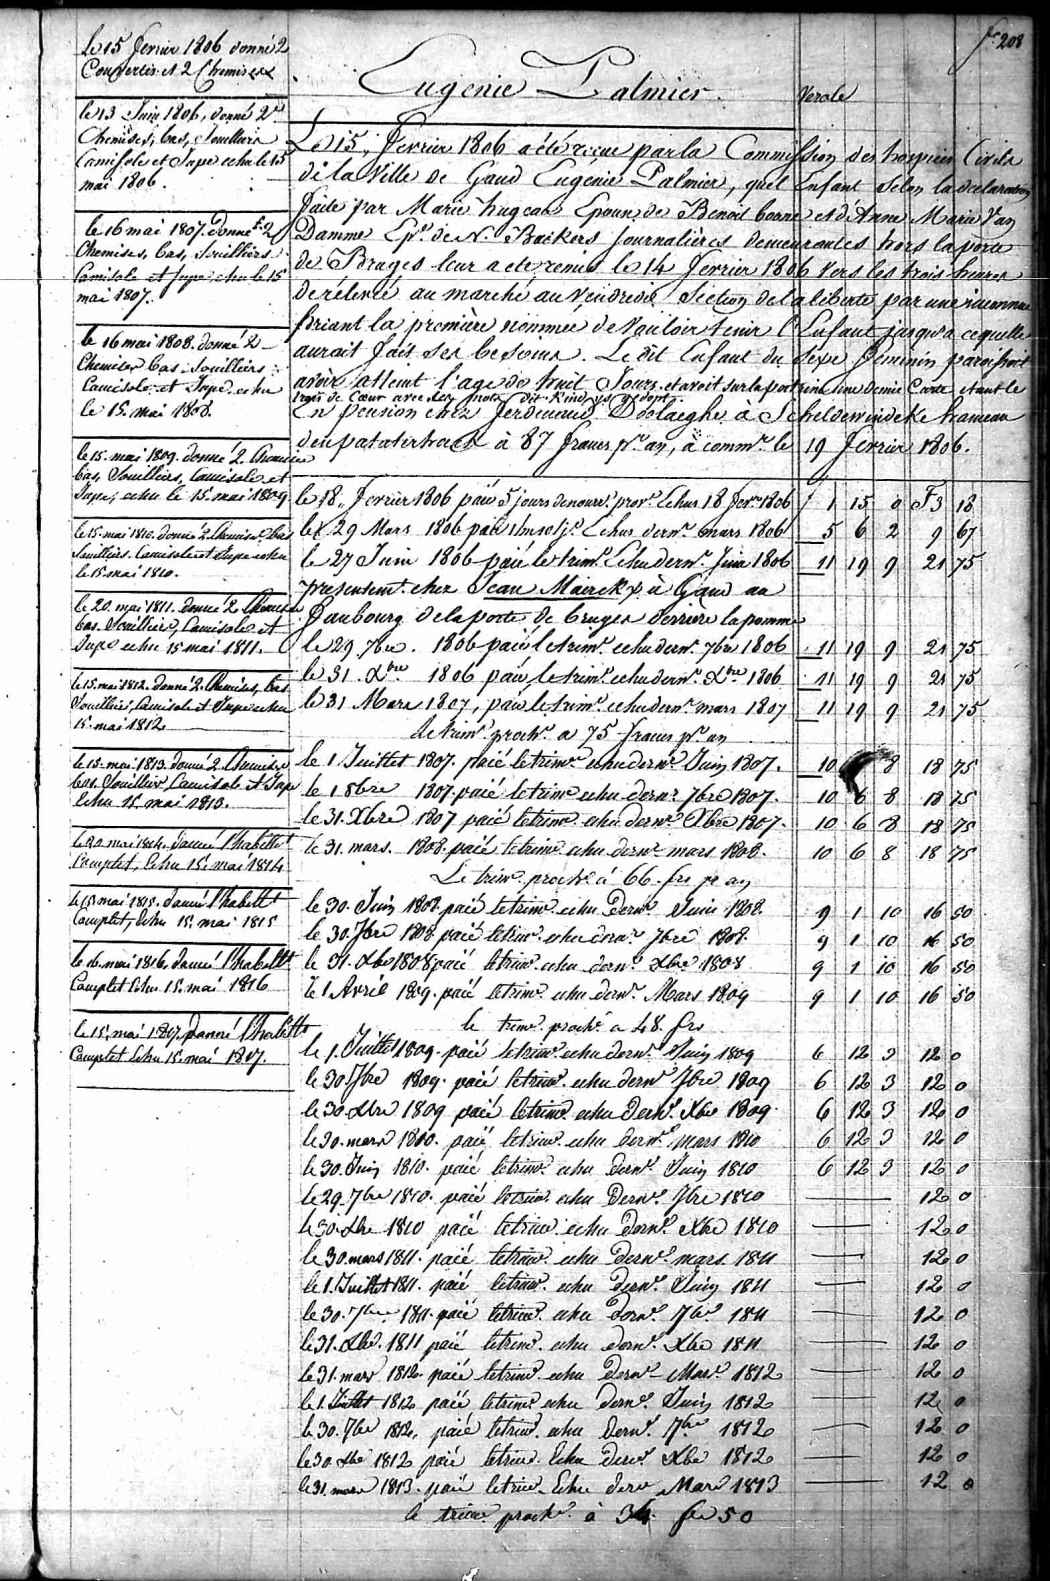 fo 208
Le 15 fevrier 1806 donné 2
Couvertes et 2 Chemises
le 13 Juin 1806, donné 2
Chemises, bas, Souilliers
Camisole et Jupe echu le 15
mai 1806.
le 16 mai 1807. Donné 2
Chemises, bas, Souilliers
Camisole et Jupe echu le 15
mai 1807.
le 16 mai 1808. donné 2
Chemises bas, Souilliers
Camisole et Jupe echu
le 15. mai 1808.
le 15. mai 1809. donné 2. Chemise
bas, Souilliers, Camisole et
Jupe, echu le 15. mai 1809
le 15. mai 1810. donné 2. Chemise bas
Souilliers. Camisole et Jupe echu
le 15 mai 1810.
le 20. mai 1811. donné 2. Chemise
bas. Souilliers, Camisole et
Jupe echu 15 mai 1811.
le 15. mai 1812. donné 2. Chemises, bas
Souilliers, Camisole et Jupe echu
15. mai 1812
le 15. mai 1813. donné 2. Chemise
bas. Souilliers, Camisole et Jupe
Echu 15. mai 1813.
le 20 mai 1814. donné l'habillt
Complet, Echu 15. mai 1814
le 15 mai 1815. donné l'habillt
Complet, Echu 15. mai 1815
le 16. mai 1816. donné l'habillt
Complet Echu 15. mai 1816
le 15. mai 1817. donné l'habillt
Complet Echu 15. mai 1817.
Eugenie Palmier. Verole
Le 15, Fevrier 1806 a été recue par la Commission des hospices Civils
de la Ville de Gand Eugénie Palmier, quel Enfant selon la declaration
faite par Marie Epouse de Benoit et d'Anne Marie Van
Damme Epse. de N. Backers Journalières demeurantes hors la porte
de Bruges leur a ete remis le 14 fevrier 1806 vers les trois heures
de rélevée au marché au Vendredi Section de la liberté par une inconnue
priant la première nommée de Vouloir tenir l'Enfant jusqu'a ce qu'elle
aurait fait ses besoins. Le dit Enfant du Sexe feminin paroissoit
avoir atteint l'age de huit Jours, et avoit sur la poitrine une demie Carte etant le
rois de Cœur avec les mots dit Kind is gedopt.
En Pension chez Ferdinand Doolaeghe à Scheldewindeke hameau
den patatenhoek à 87 francs pr. an, à comme. le 19 Fevrier 1806.
le 18, Fevrier 1806 paié 5 jours de nourre. provr. Echus 18 fevr. 1806 f 1 15 0 F 3 18
le 29 Mars 1806 paié 1 mois Echus derne. mars 1806 5 6 2 9 67
le 27 Juin 1806 paié le trime. Echu derne. Juin 1806 11 19 9 21 75
presentemt. chez Jean Mairckx à Gand au
Faubourg de la porte de bruges derriere la pomme
le 29 7bre. 1806 paié le trime. echu derne. 7bre 1806 11 19 9 21 75
le 31. Xbre 1806 paié, le trime. echu derne. Xbre 1806 11 19 9 21 75
le 31 Mars 1807, paié le trime. echu derne. mars 1807 11 19 9 21 75
le trime. proche. a 75 francs pr. an
le 1 Juillet 1807. paié le trime echu derne. Juin 1807. 10 8 18 75
le 1 8bre 1807. paié le trime echu derne. 7bre 1807. 10 6 8 18 75
le 31. Xbre 1807 paié le trime. echu derne. Xbre 1807. 10 6 8 18 75
le 31. mars. 1808. paié le trime. echu derne. mars 1808. 10 6 8 18 75
Le trime. proche. à 66. frs pr an
le 30. Juin 1808. paié le trime. echu derne. Juin 1808. 9 1 10 16 50
le 30. 7bre 1808. paié le trime. echu derne. 7bre 1808. 9 1 10 16 50
le 31. Xbre 1808 paié le trime. echu derne. Xbre 1808 9 1 10 16 50
le 1 Avril 1809. paié le trime. echu derne. Mars 1809 9 1 10 16 50
le trime. proche. a 48. frs
le 1. Juillet 1809. paié le trime. echu derne. Juin 1809 6 12 3 12 0
le 30 7bre 1809. paié le trime. echu derne. 7bre 1809 6 12 3 12 0
le 30 Xbre 1809 paié le trime. echu derne. Xbre 1809. 6 12 3 12 0
le 30. mars 1810. paié le trime. echu derne. mars 1810 6 12 3 12 0
le 30. Juin 1810. paié le trime. echu derne. Juin 1810 6 12 3 12 0
le 29. 7bre 1810. paié le trime. echu derne. 7bre 1810 12 0
le 30. Xbre 1810 paié le trime. echu derne. Xbre 1810 12 0
le 30. mars 1811. paié le trime. echu derne. mars. 1811 12 0
le 1. Juillet 1811. paié le trime. echu derne. Juin 1811 12 0
le 30. 7bre. 1811. paié le trime. echu derne. 7bre 1811 12 0
le 31. Xbre. 1811 paié le trime. echu derne. Xbre 1811 12 0
le 31. mars 1812. paié le trime. echu derne. Mars. 1812 12 0
le 1. Juillet 1812 paié le trime. echu derne. Juin 1812 12 0
le 30. 7bre 1812, paié le trime. echu derne. 7bre 1812 12 0
le 30 Xbre 1812 paié le trime. Echu derne. Xbre 1812 12 0
le 31. mars 1813. paié le trime. Echu derne. Mars 1813 12 0
le trime. proche. à 34. frs 50